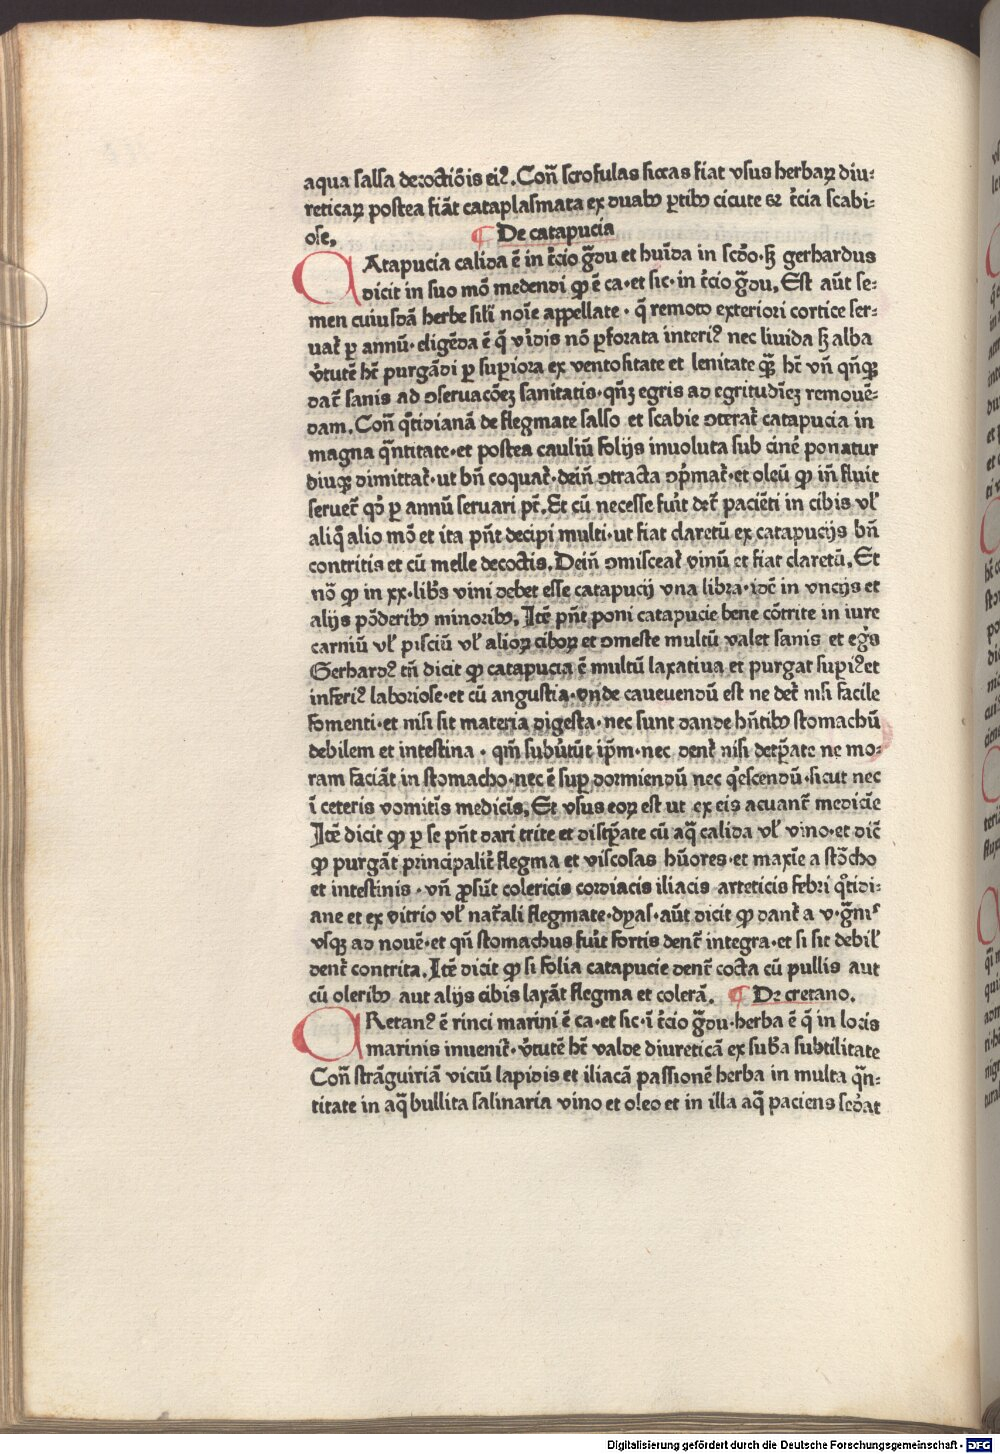 aqua salsa decoctiõis eiꝰ. Con̄ scrofulas siccas fiat vsus herbaꝝ diu⸗
reticaꝝ postea fiãt cataplasmata ex duabꝰ ꝑtibꝰ cicute ꝫ t̃cia scabi⸗
ose. ¶ De catapucia
CAtapucia calida ẽ in t̃cio gͣdu et huĩda in scdõ. sꝫ gerhardus
dicit in suo mõ medendi ꝙ ẽ ca. et sic. in t̃cio gͣdu. Est aũt se⸗
men cuiusdã herbe sili noĩe appellate. q̃ remoto exteriori cortice ser⸗
uat᷑ ꝑ annũ. eligẽda ẽ q̃ viridis nõ ꝑforata interiꝰ nec liuida sꝫ alba
v̓tutẽ hꝫ purgãdi ꝑ supiora ex ventositate et lenitate q̃ꝫ hꝫ vñ qñqꝫ
dat᷑ sanis ad ꝯseruacõeꝫ sanitatis. qñqꝫ egris ad egritudĩeꝫ remouẽ⸗
dam. Con̄ q̃tidianã de flegmate salso et scabie ꝯterat᷑ catapucia in
magna q̃ntitate. et postea cauliũ folijs inuoluta sub cine᷑ ponatur
diuqꝫ dimittat᷑. ut bñ coquat᷑. dein̄ ꝯtracta ꝯp̃mat᷑. et oleũ ꝙ in̄ fluit
seruet᷑ qꝫ ꝑ annũ seruari pt̃. Et cũ necesse fu᷑it det᷑ paciẽti in cibis vl̓
aliq̃ alio mõ et ita pñt decipi multi. ut fiat claretũ ex catapucijs bñ
contritis et cũ melle decoctis. Dein̄ ꝯmisceat᷑ vinũ et fiat claretũ. Et
nõ ꝙ in xx. libris vini debet esse catapucij vna libra. idẽ in vncijs et
alijs põderibꝰ minoribꝰ. Itẽ pñt poni catapucie bene cõtrite in iure
carniũ vl̓ pisciũ vl̓ alioꝝ ciboꝝ et ꝯmeste multũ valet sanis et egris
Gerhardꝰ tñ dicit ꝙ catapucia ẽ multũ laxatiua et purgat supiꝰ et
inferiꝰ laboriose. et cũ angustia. vnde caueuendũ est ne det᷑ nisi facile
fomenti. et nisi sit materia digesta. nec sunt dande hñtibꝰ stomachũ
debilem et intestina. qm̃ subũtũt ip̃m. nec dent᷑ nisi detꝑate ne mo⸗
ram faciãt in stomacho. nec ẽ suꝑ dormiendũ nec q̃escendũ. sicut nec
ĩ ceteris vomitiis medicĩs. Et vsus eoꝝ est ut ex eis acuant᷑ medicĩe
Itẽ dicit ꝙ ꝑ se pñt dari trite et distꝑate cũ aq̃ calida vl̓ vino. et dic̃
ꝙ purgãt principalit᷑ flegma et viscosas hũores. et maxĩe a stõcho
et intestinis. vñ ꝓsũt colericis cordiacis iliacis arteticis febri q̃tidi⸗
ane et ex vitrio vl̓ nat᷑ali flegmate. dyas. aũt dicit ꝙ dant᷑ a v. gͣnis
vsqꝫ ad nouẽ. et qñ stomachus fu᷑it fortis dent᷑ integra. et si sit debil̓
dent᷑ contrita. Itẽ dicit ꝙ si folia catapucie dent᷑ cocta cũ pullis aut
cũ oleribꝰ aut alijs cibis laxãt flegma et colerã. ¶ De cretano.
CRetanꝰ ẽ rinci marini ẽ ca. et sic. ĩ t̃cio gͣdu. herba ẽ q̃ in locis
marinis inuenit᷑. v̓tutẽ hꝫ valde diureticã ex suba subtilitate
Con̄ strãguiriã viciũ lapidis et iliacã passionẽ herba in multa q̃n⸗
titate in aq̃ bullita salinaria vino et oleo et in illa aq̃ paciens sedeat
Digitalisierung gefördert durch die Deutsche Forschungsgemeinschaft - DFG